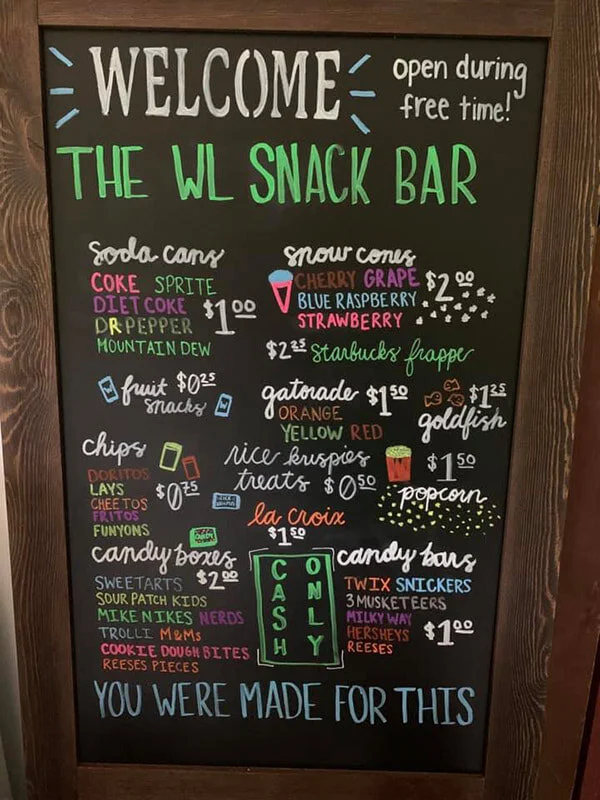 WELCOME
open during
free time!
THE WL SNACK BAR
soda cans
COKE SPRITE
DIET COKE
DR PEPPER
MOUNTAIN DEW
$1.00
snow cones
CHERRY GRAPE
BLUE RASPBERRY
STRAWBERRY
$2.00
$2.25 Starbucks frappe
fruit $0.25
snacks
gatorade $1.50
ORANGE
YELLOW RED
$1.25
goldfish
chips
DORITOS
LAYS
CHEETOS
FRITOS
FUNYONS
$0.75
rice krispies
treats $0.50
$1.50
popcorn
la croix
$1.50
candy boxes
$2.00
SWEETARTS
SOUR PATCH KIDS
MIKE N IKES NERDS
TROLLI M&Ms
COOKIE DOUGH BITES
REESES PIECES
CASH
ONLY
candy bars
TWIX SNICKERS
3 MUSKETEERS
MILKY WAY
HERSHEYS
REESES
$1.00
YOU WERE MADE FOR THIS